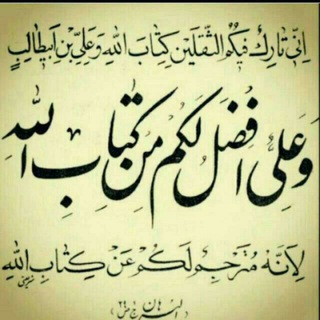 اِنّی تارِكٌ فیكُمُ الثَّقَلَینِ كِتابَ اللهِ وَعَلیِّ بْنِ اَبیطالِبٍ
وَعَلِی اَفضَلُ لَكُم مِن كِتابِ اللهِ
لِاَنَّهُ مُتَرجِمٌ لَكُم عَن كِتابِ اللهِ
البرهان ج ص